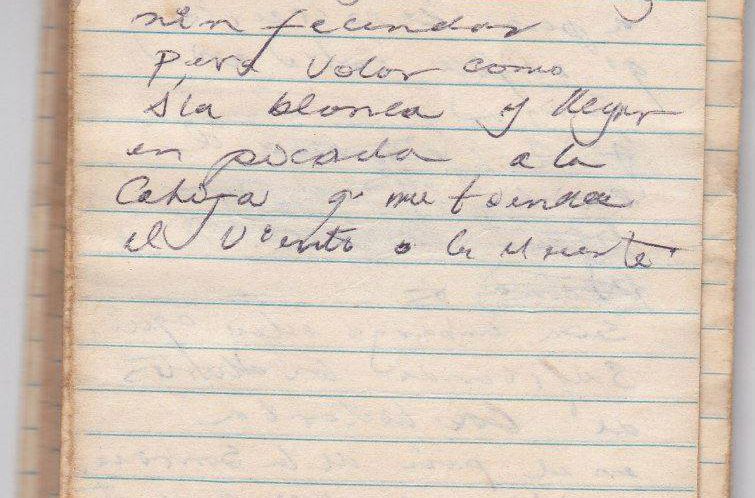 sin fecundar
pero volar como
ala blanca y llegar
en picada a la
Cobija q' me tienda
el viento o la muerte